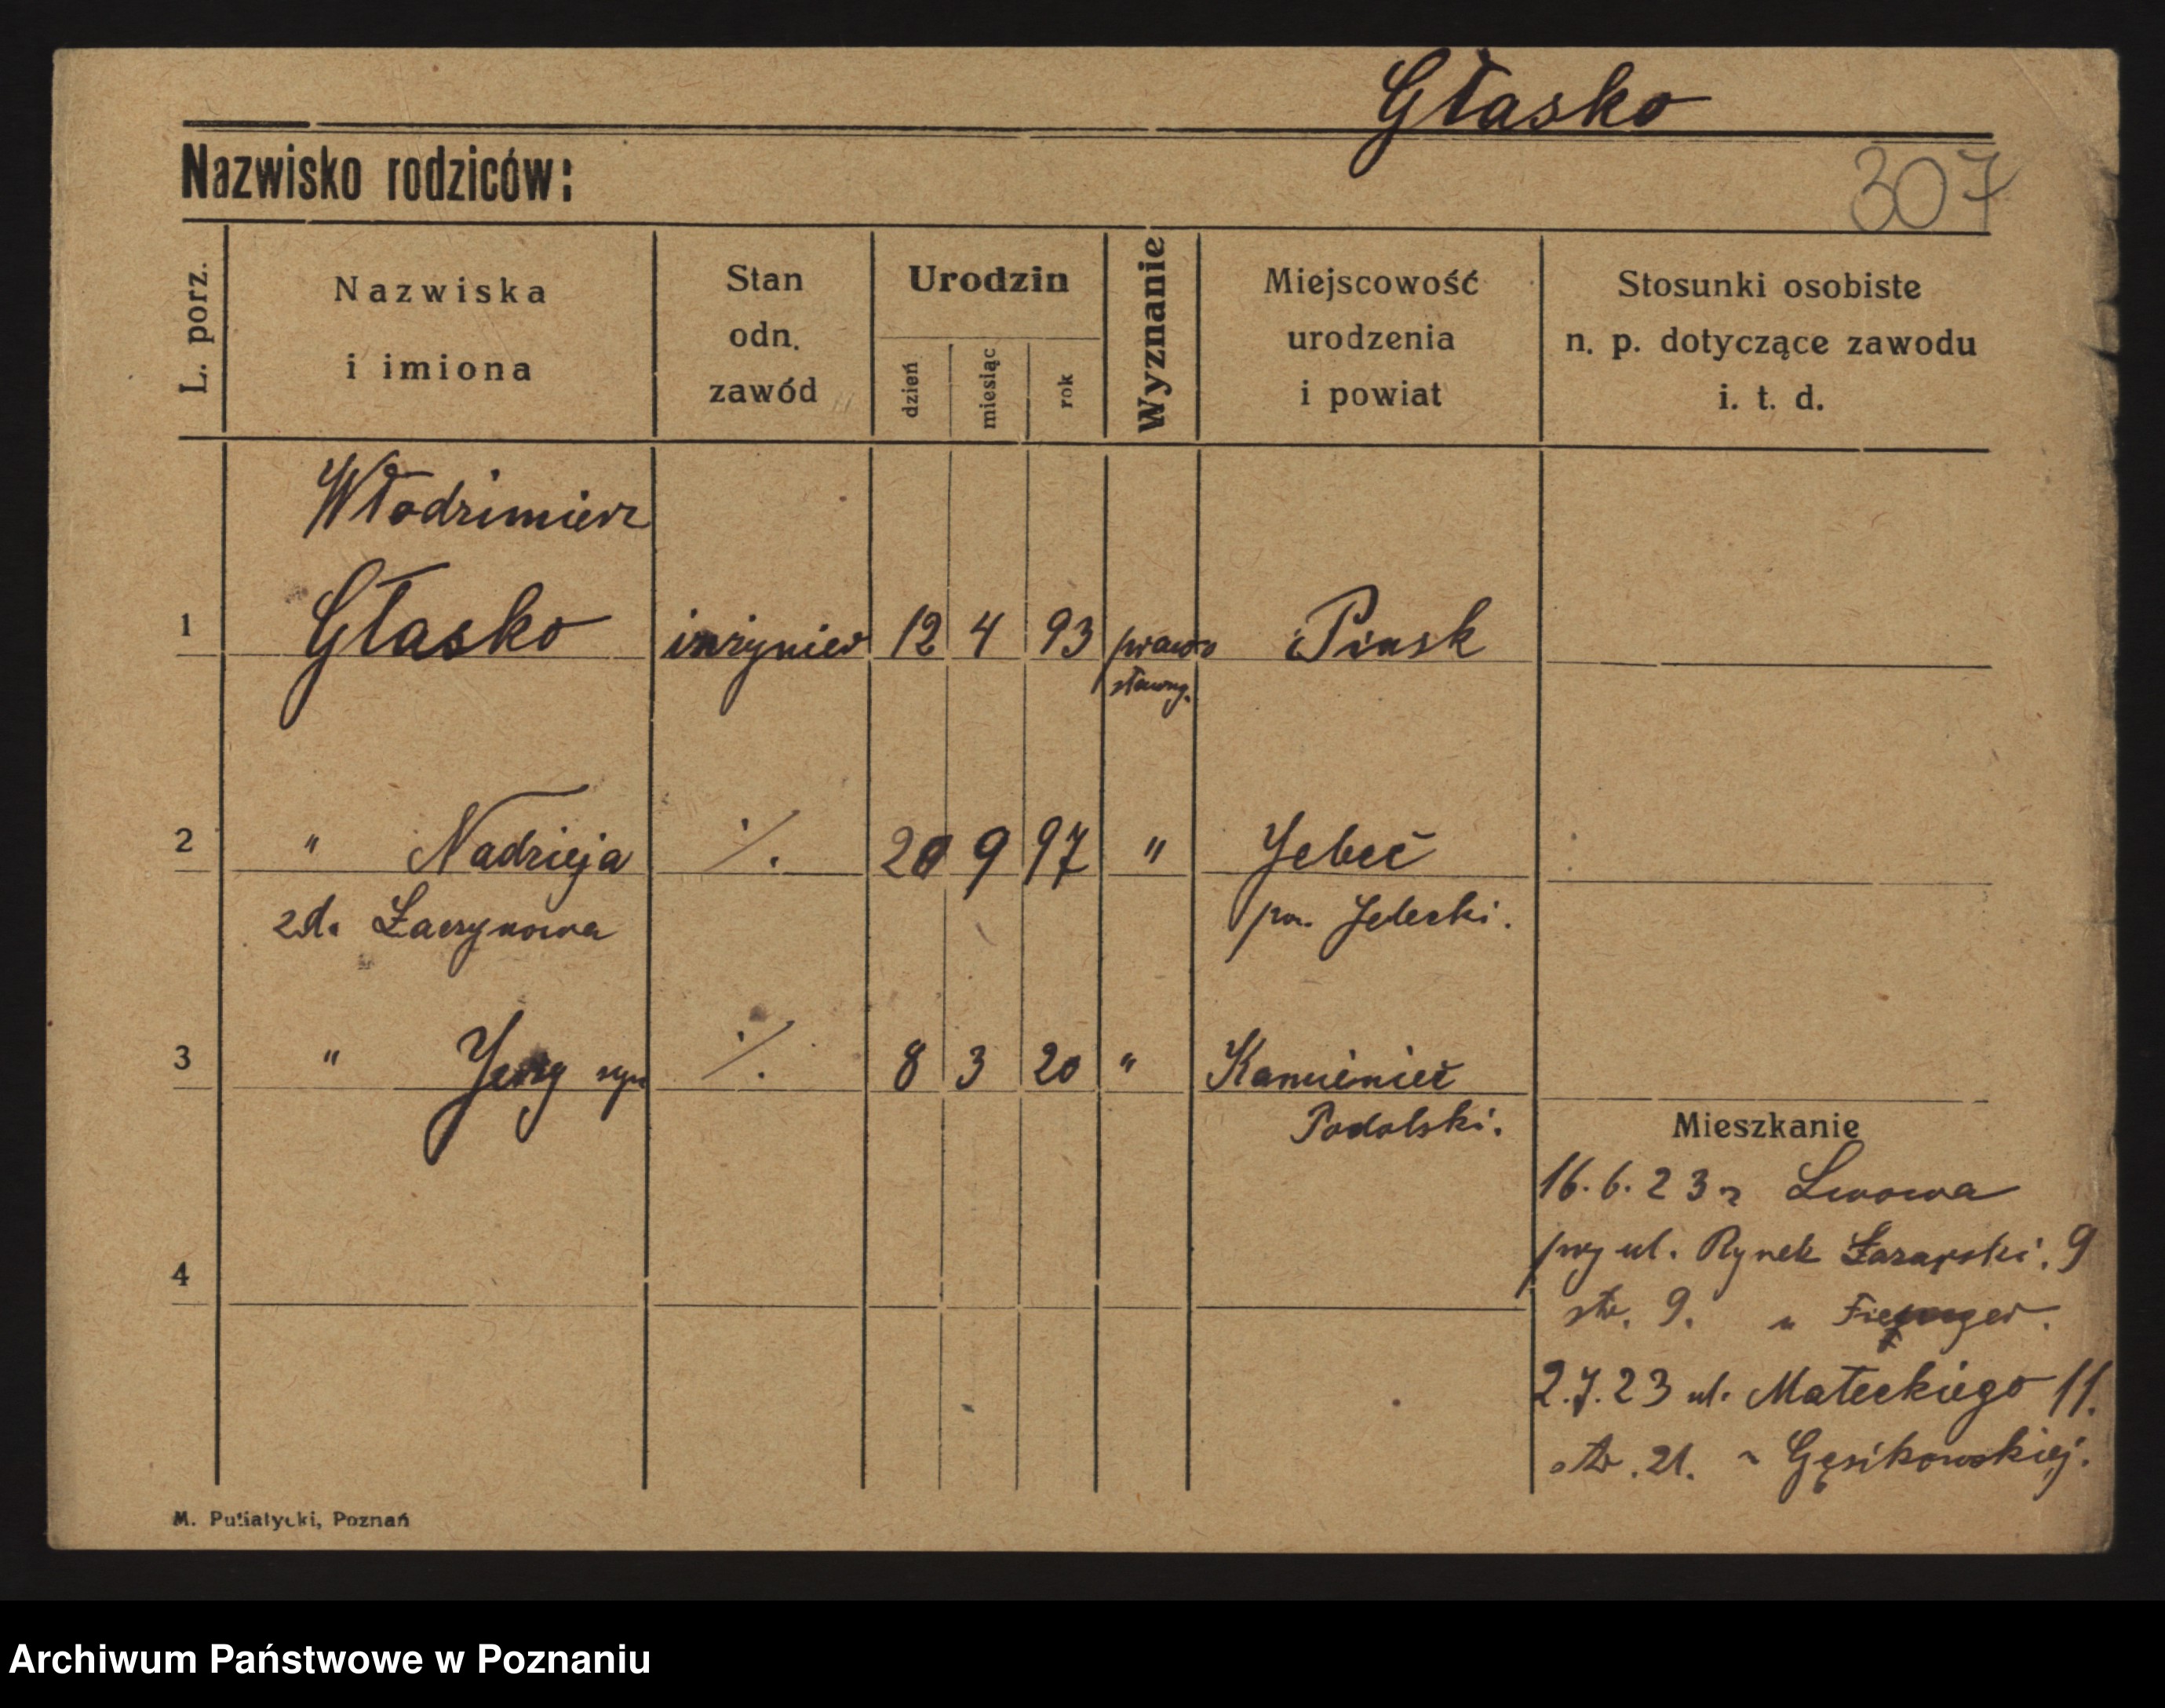 Głasko
Nazwisko rodziców:
307
L. porz.
Nazwiska
i imiona
Stan
odn.
zawód
Urodzin
dzień
miesiąc
rok
Wyznanie
Miejscowość
urodzenia
i powiat
Stosunki osobiste
n. p. dotyczące zawodu
i. t. d.
Włodzimierz
1 Głasko inżynier 12 4 93 prawo Pinsk
sławny.
2 " Nadzieja ·/. 20 9 97 " Jebeć
zd. Łaczynowa pow. Jelecki.
3 " Jerzy syn ·/. 8 3 20 " Kamieniec
Podolski.
Mieszkanie
16.6.23 z Lwowa
przy ul. Rynek Łazarski. 9
str. 9. u
4
2.7.23 ul. Małeckiego 11.
str. 21. u Gęsikowskiej.
M. Putiatycki, Poznań
Archiwum Państwowe w Poznaniu